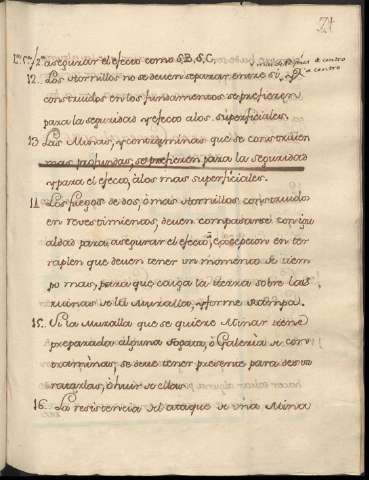 21
asegurar el efecto como S.B, S.C,
12. Los Hornillos no se deven separar entre sí,
a centro
construidos en los fundamentos se prefieren
para la seguridad y efecto a los superficiales.
13 Las Minas, y contraminas que se construien
mas profundas, se prefieren para la seguridad
y para el efecto, à las mas superficiales.
Los fuegos de dos, ò mas Hornillos, construidos
en revestimientos, deven compasarse con igu
aldad para asegurar el efecto, excepcion en ter
raplen que deven tener un momento de tiem
po mas, para que caiga la tierra sobre las
ruinas de la Muralla, y forme Rampa.
15. Si la Muralla que se quiere Minar tiene
preparada alguna Fogata, ò Galeria de con
tramina, se deve tener presente para
ò huir de ella.
16. La resistencia del ataque de una Mina